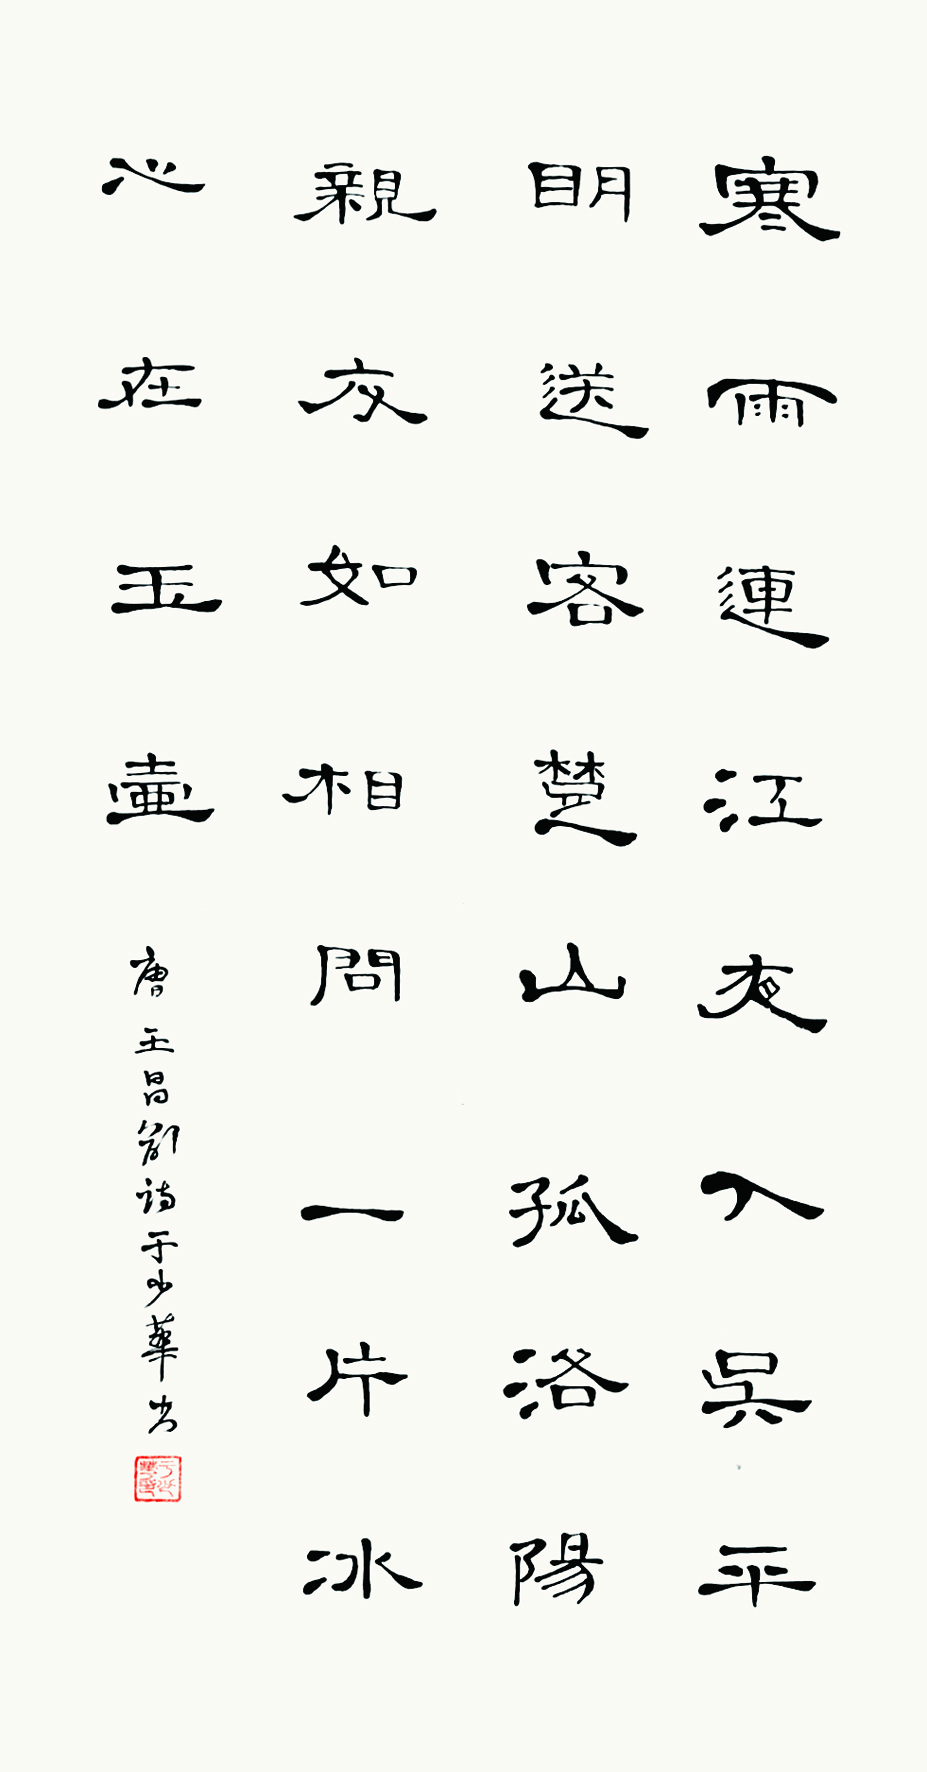 寒雨連江夜入吳平
明送客楚山孤洛陽
親友如相問一片冰
心在玉壺
唐王昌齡詩于少華书